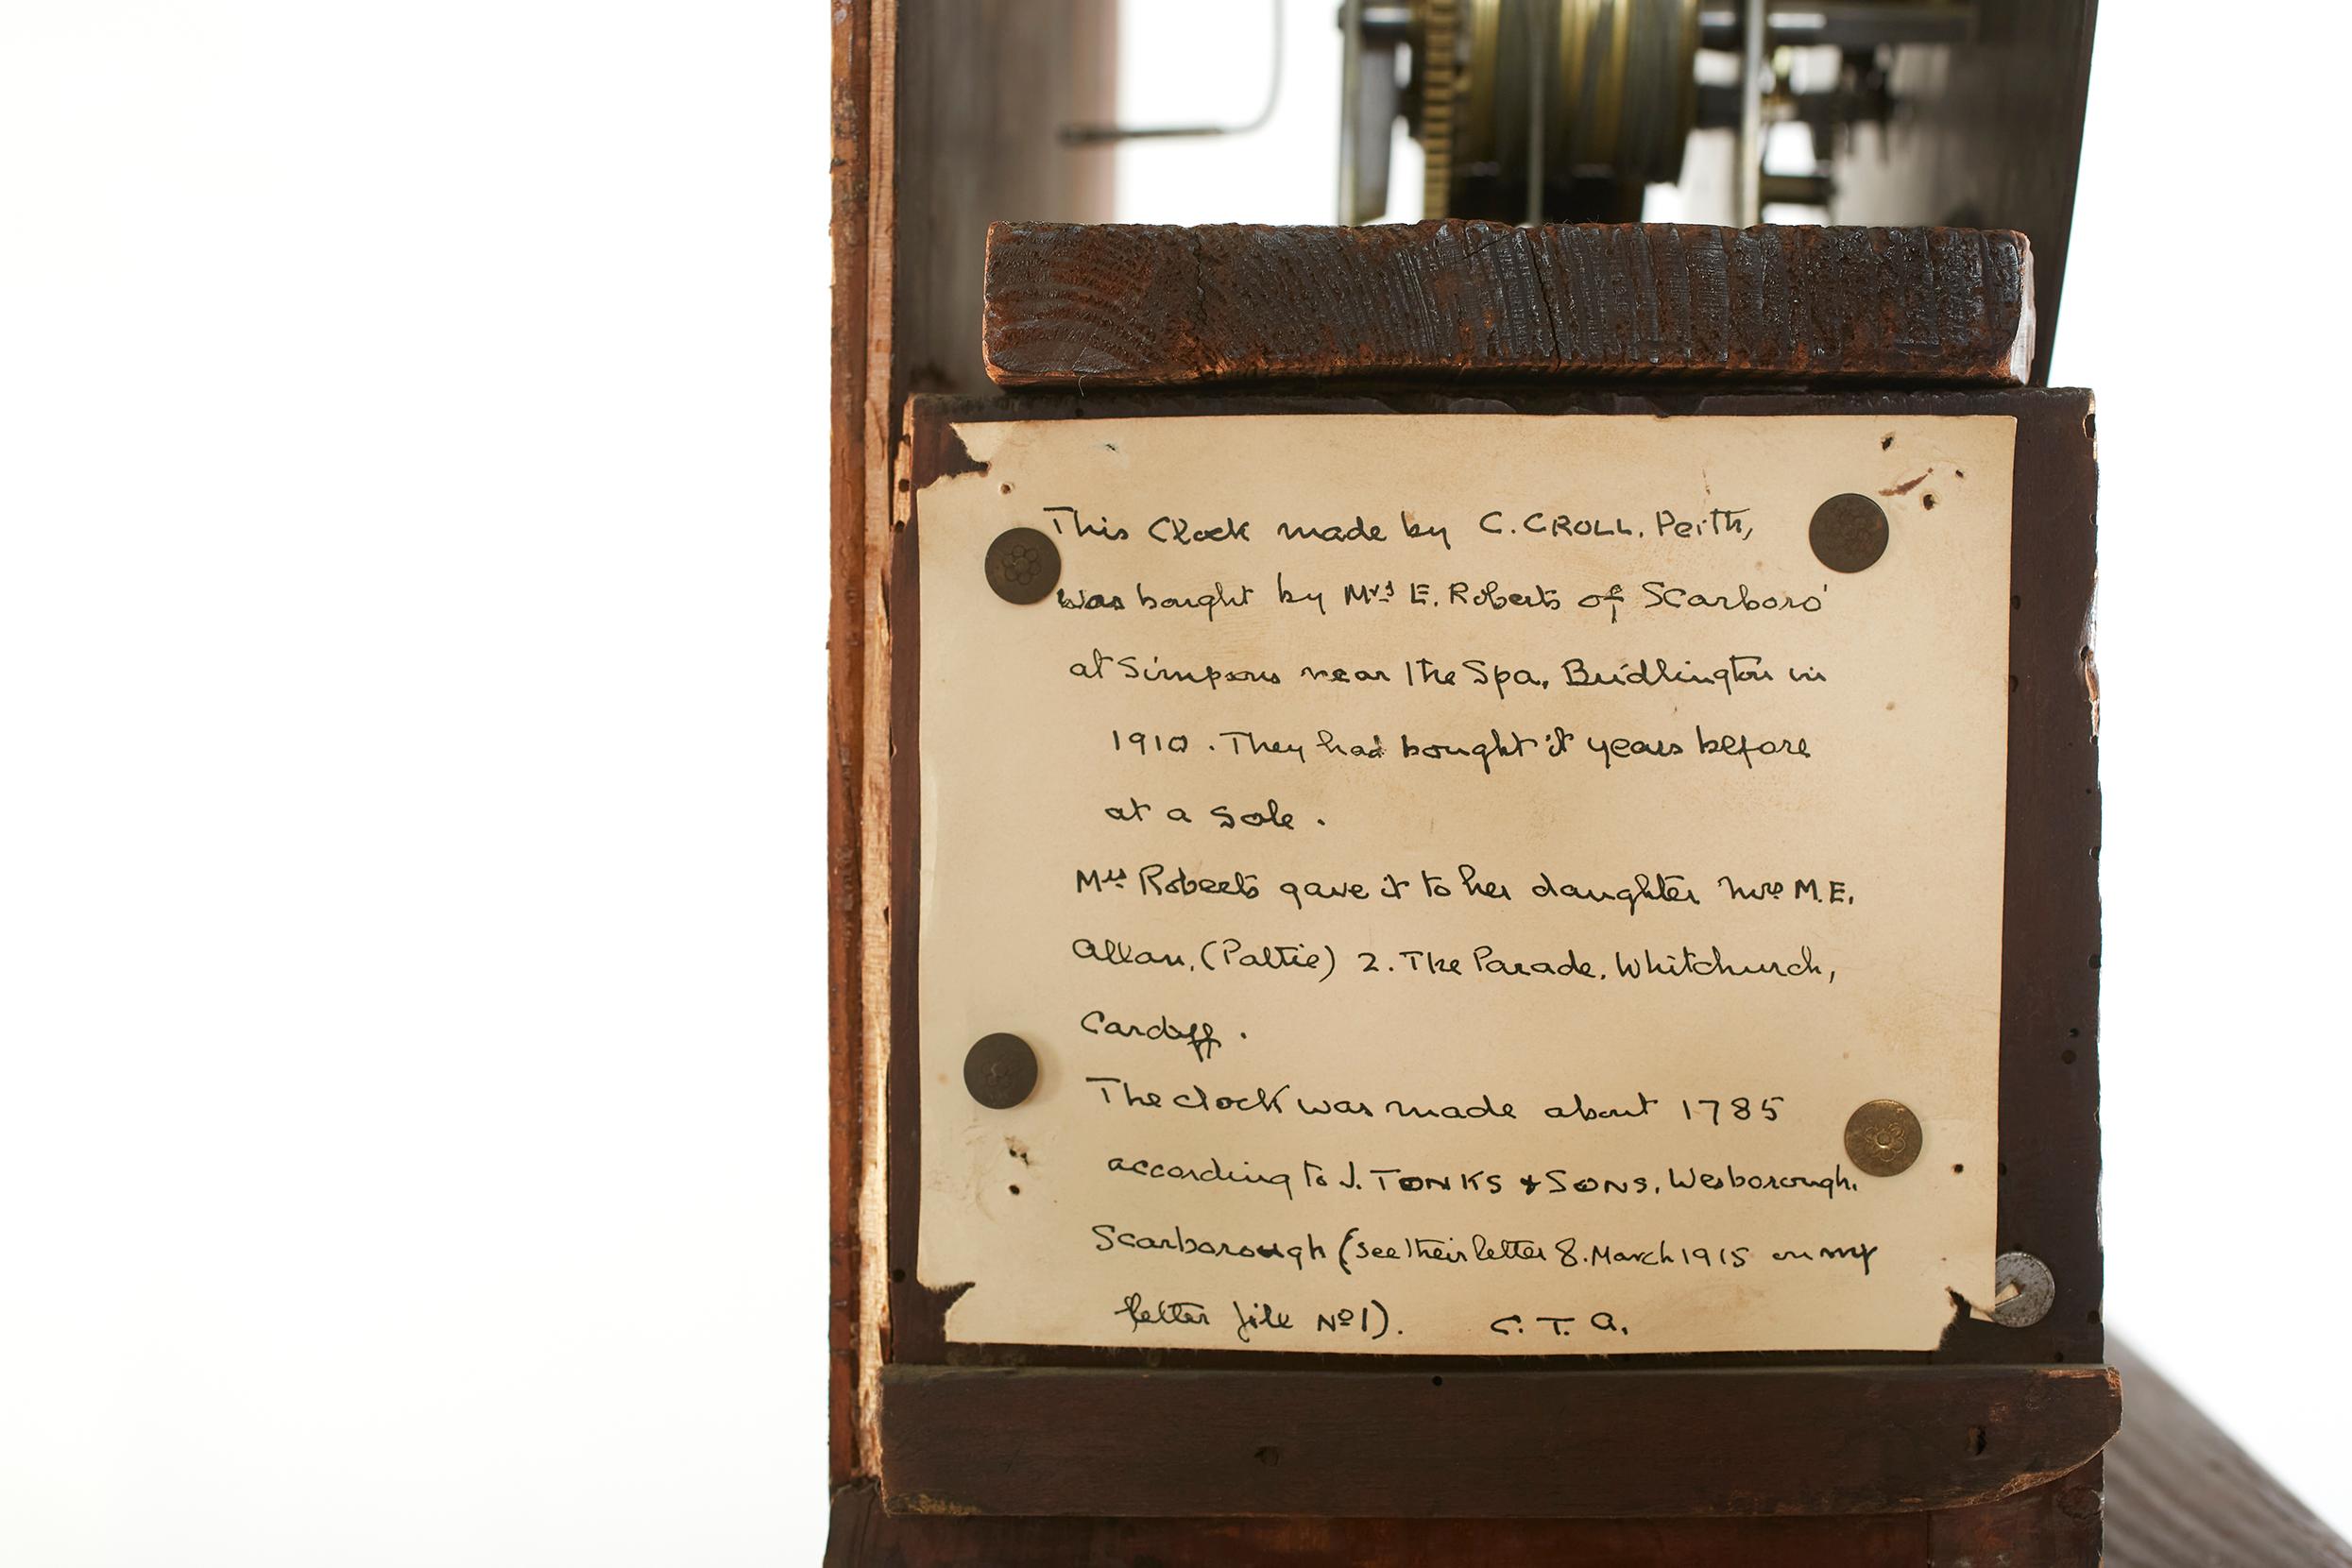 This Clock made by C. CROLL. Perth,
was bought by Mrs E. Roberts of Scarboro'
at Simpsons near the Spa, Bridlington in
1910. They had bought it years before
at a sale.
Mrs Roberts gave it to her daughter Mrs M.E.
Allan, (Pattie) 2. The Parade. Whitchurch,
Cardiff.
The clock was made about 1785
according to J. TONKS & SONS. Wesborough.
Scarborough (see their letter 8. March 1915 on my
letter file No 1). C. T. A.